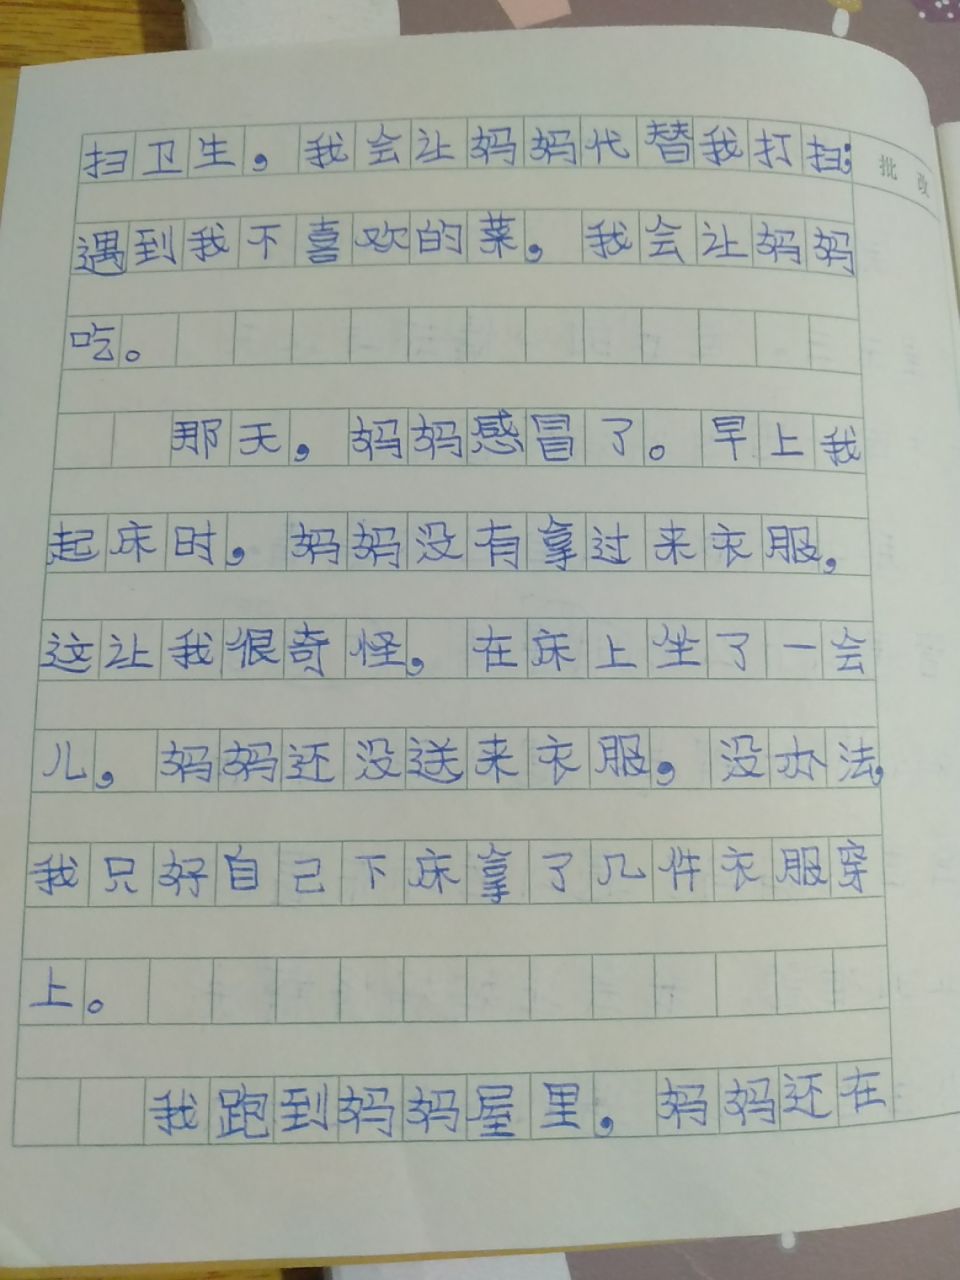 扫卫生，我会让妈妈代替我打扫；
批改
遇到我不喜欢的菜，我会让妈妈
吃。
那天，妈妈感冒了。早上我
起床时，妈妈没有拿过来衣服，
这让我很奇怪，在床上坐了一会
儿，妈妈还没送来衣服，没办法，
我只好自己下床拿了几件衣服穿
上。
我跑到妈妈屋里，妈妈还在